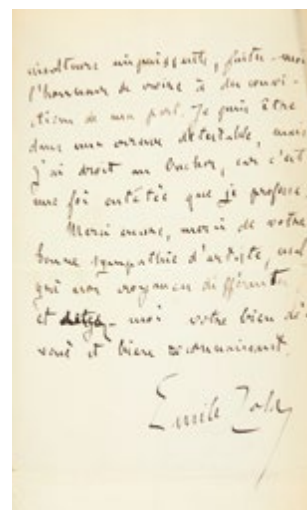 impuissante, faites-moi
l'honneur de croire à du convi-
ction de ma part. Je puis être
dans une erreur détestable, mais
j'ai droit au bucher, car c'est
une foi entêtée que je professe.
Merci encore, merci de votre
bonne sympathie d'artiste, mal-
gré nos croyances différentes
et moi votre bien dé-
voué et bien reconnaissant.
Emile Zola